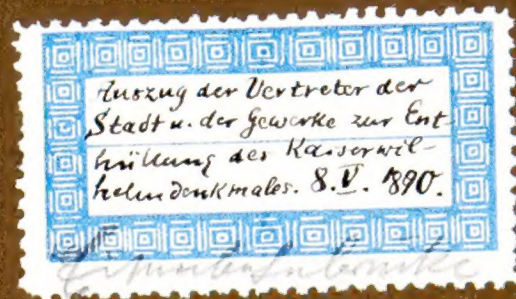 Auszug der Vertreter der
Stadt u. der Gewerke zur Ent
hüllung des Kaiserwil-
helmdenkmales. 8. V. 1890.